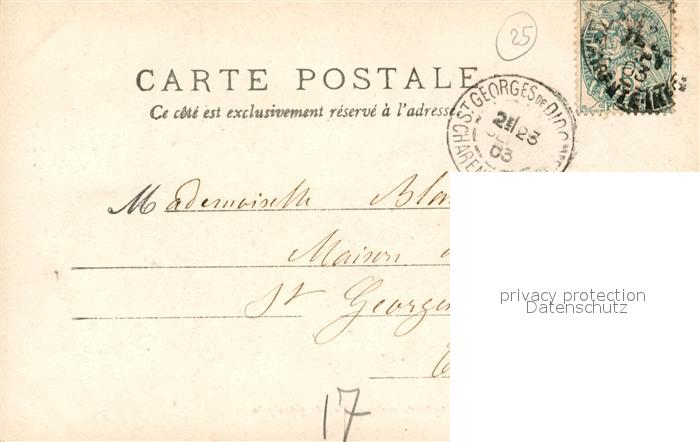 25
CARTE POSTALE
Ce côté est exclusivement réservé à l'adresse
ST GEORGES DE DIDONNE
2E/23
03
CHAREN
Mademoiselle Bla
Maison
St Georges
privacy protection
Datenschutz
17